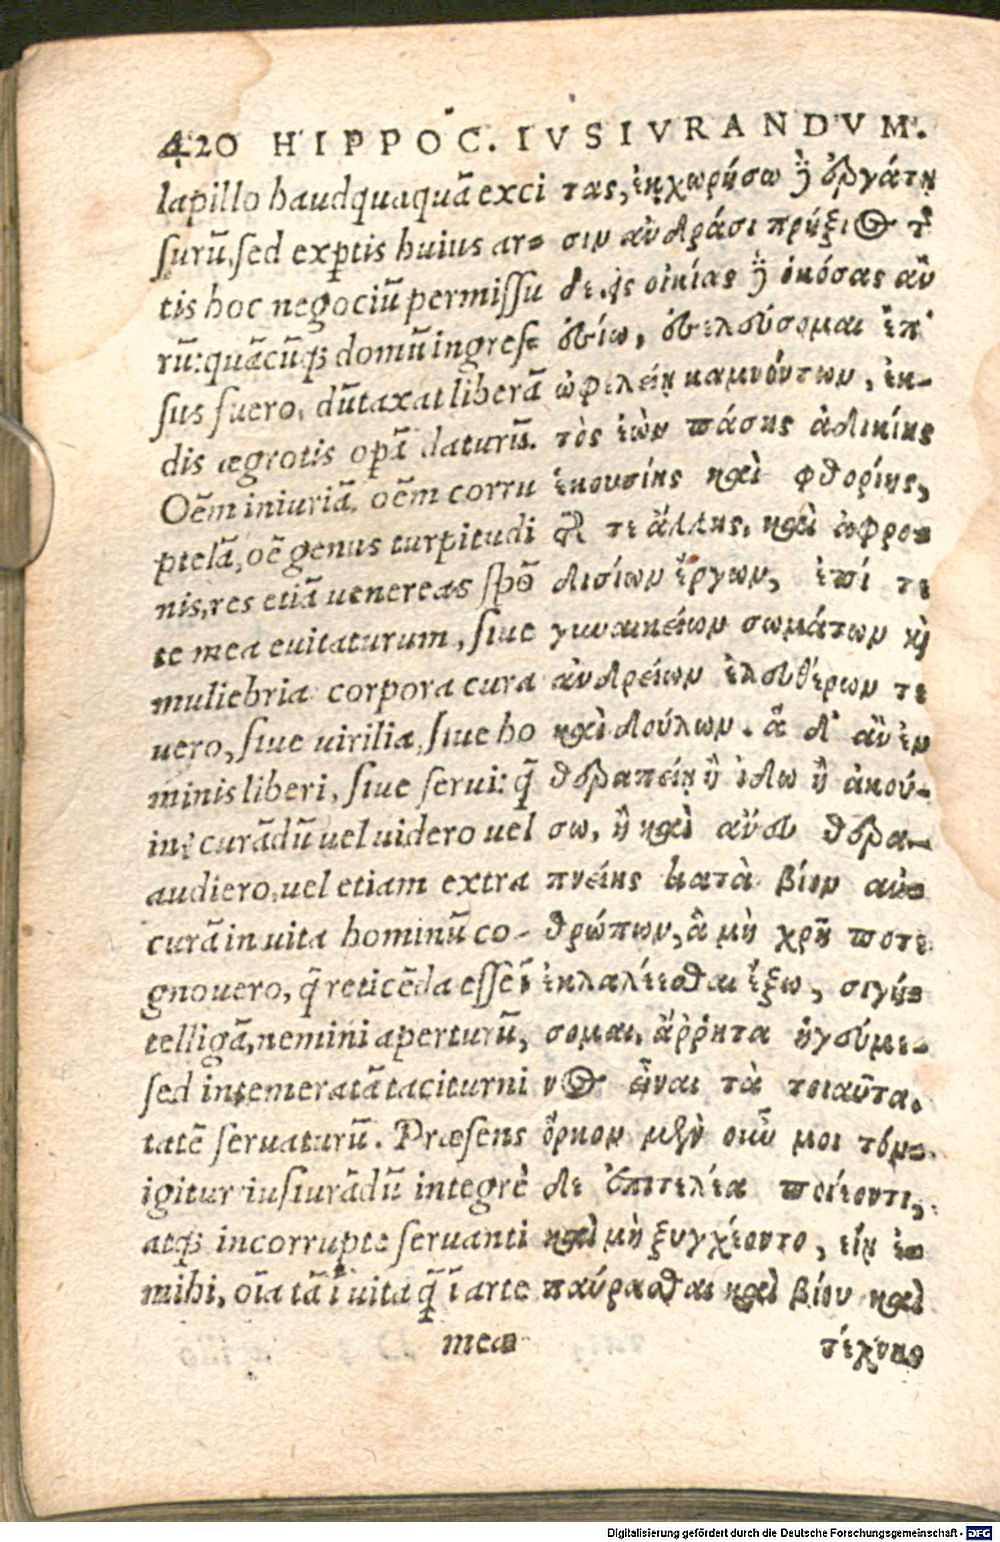 420 HIPPOC. IVSIVRANDVM.
lapillo haudquaquā exci
surū, sed exptis huius ar-
tis hoc negociū permissu
rū: quācūq; domū ingres-
sus fuero, dūtaxat liberā
dis ægrotis opā daturū.
Oēm iniuriā, oēm corru
ptelā, oē genus turpitudi
nis, res etiā uenereas spō
te mea euitaturum, siue
muliebria corpora cura
uero, siue uirilia, siue ho
minis liberi, siue serui: q̄
inǀ curādū uel uidero uel
audiero, uel etiam extra
curā in uita hominū co-
gnouero, q̄ reticēda esse ī
telligā, nemini aperturū,
sed intemeratā taciturni
tatē seruaturū. Præsens
igitur iusiurādū integrè
atq; incorruptè seruanti
mihi, oīa tā ī uita q̄̄ ī arte
mea
τας, ἐκχωρήσω ȣ̓͂ ἐργάτῃ
σιν ἀνδράσι πρήξιος τῆ
δε. ἐς οἰκίας ȣ̓͂ ὁκόσας ἂν
ἐσίω, ἐσελεύσομαι ἐπ᾽
ὠφελείῃ καμνόντων, ἐκ-
τὸς ἐὼν πάσης ἀδικίης
ἑκουσίης καὶ φθορίης,
τῆς τε ἄλλης, καὶ ἀφρο-
δισίων ἔργων, ἐπί τε
γυναικείων σωμάτων κὶ
ἀνδρείων ἐλευθέρων τε
καὶ δούλων. ἃ δ᾽ ἂν ἐν
θεραπείῃ ἢ ἴδω ἢ ἀκού-
σω, ἢ καὶ ἄνευ θερα-
πνείης κατὰ βίον ἀν-
θρώπων, ἃ μὴ χρῆ ποτε
ἐκλαλέεσθαι ἔξω, σιγή-
σομαι, ἄῤῥητα ἡγεύμε-
νος εἶναι τὰ τοιαῦτα.
ὅρκον μὲν οὖν μοι τόν-
δε ἐπιτελέα ποιέοντι,
καὶ μὴ ξυγχέοντο, εἴη ἐ-
παύρασθαι καὶ βίου καὶ
τέχνης
Digitalisierung gefördert durch die Deutsche Forschungsgemeinschaft - DFG